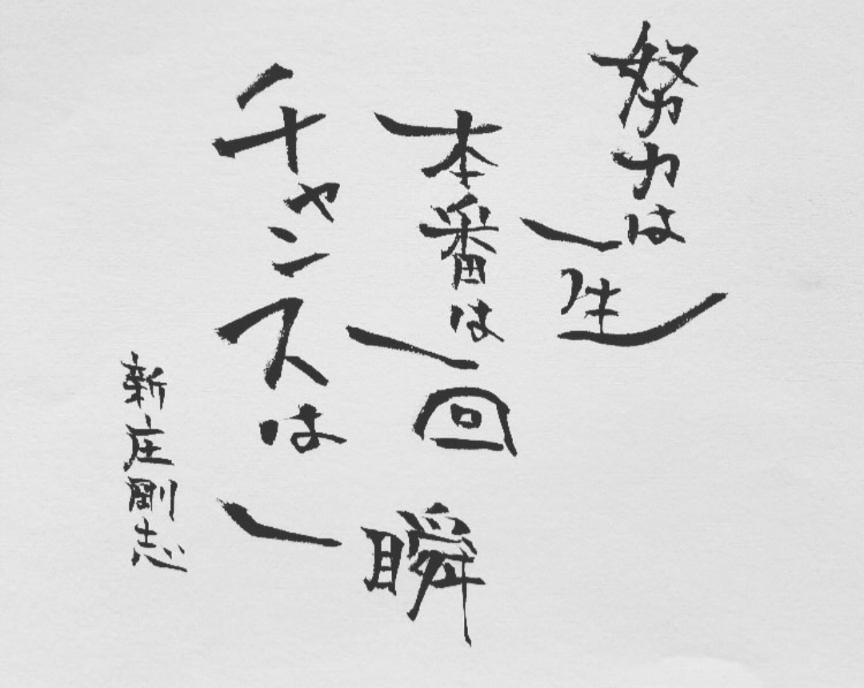 努力は一生
本番は一回
チャンスは一瞬
新庄剛志